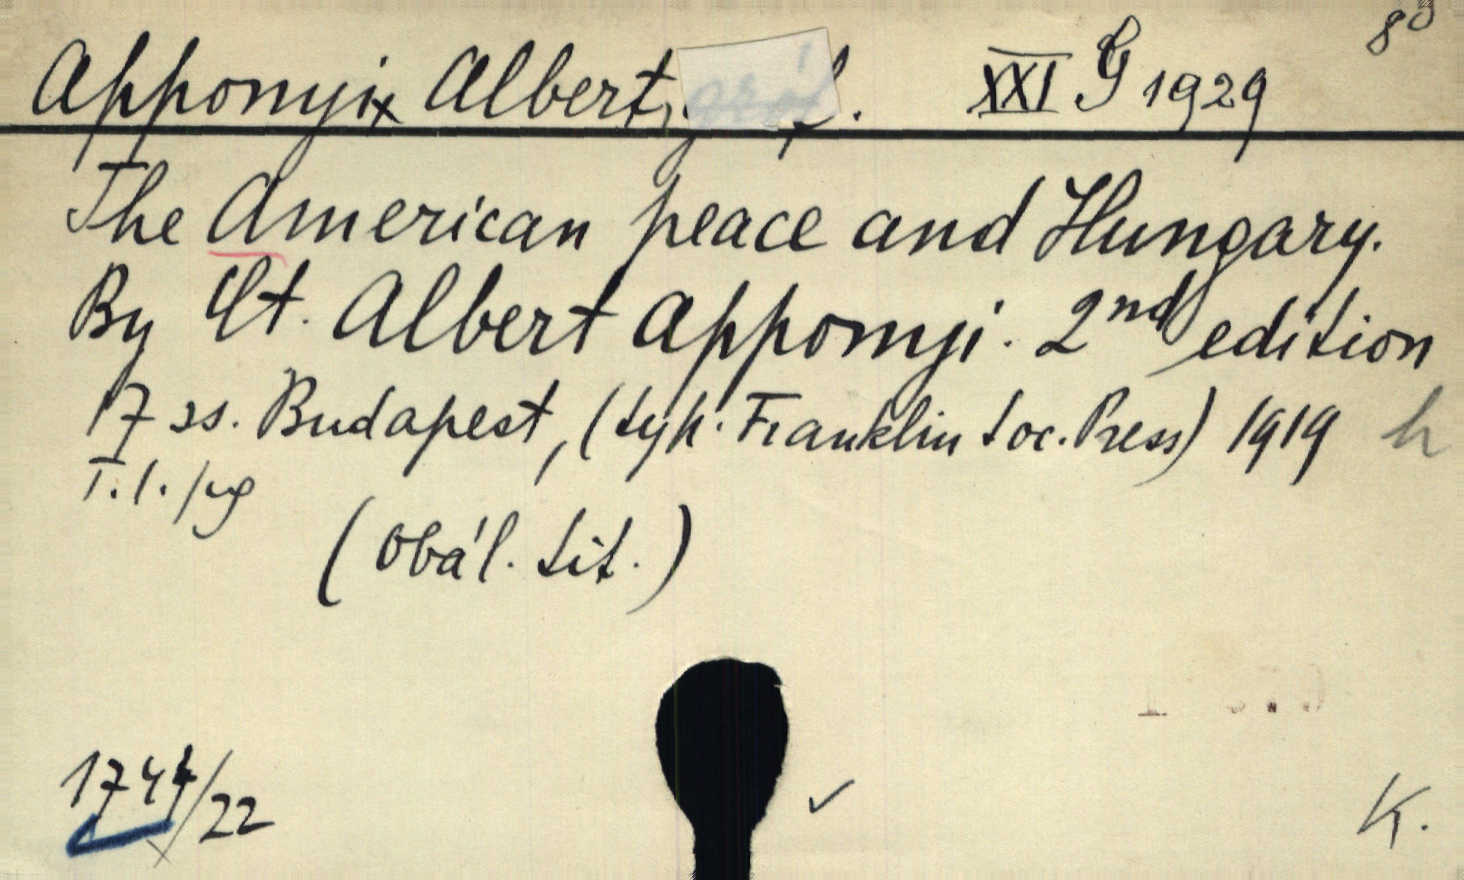 Apponyi Albert, gróf. XXI G 1929 8°
The American peace and Hungary.
By Ct. Albert Apponyi. 2nd edition
17 ss. Budapest, (typ. Franklin Soc. Press) 1919 h
T. l.
(Obál. tit.)
1744/22
K.